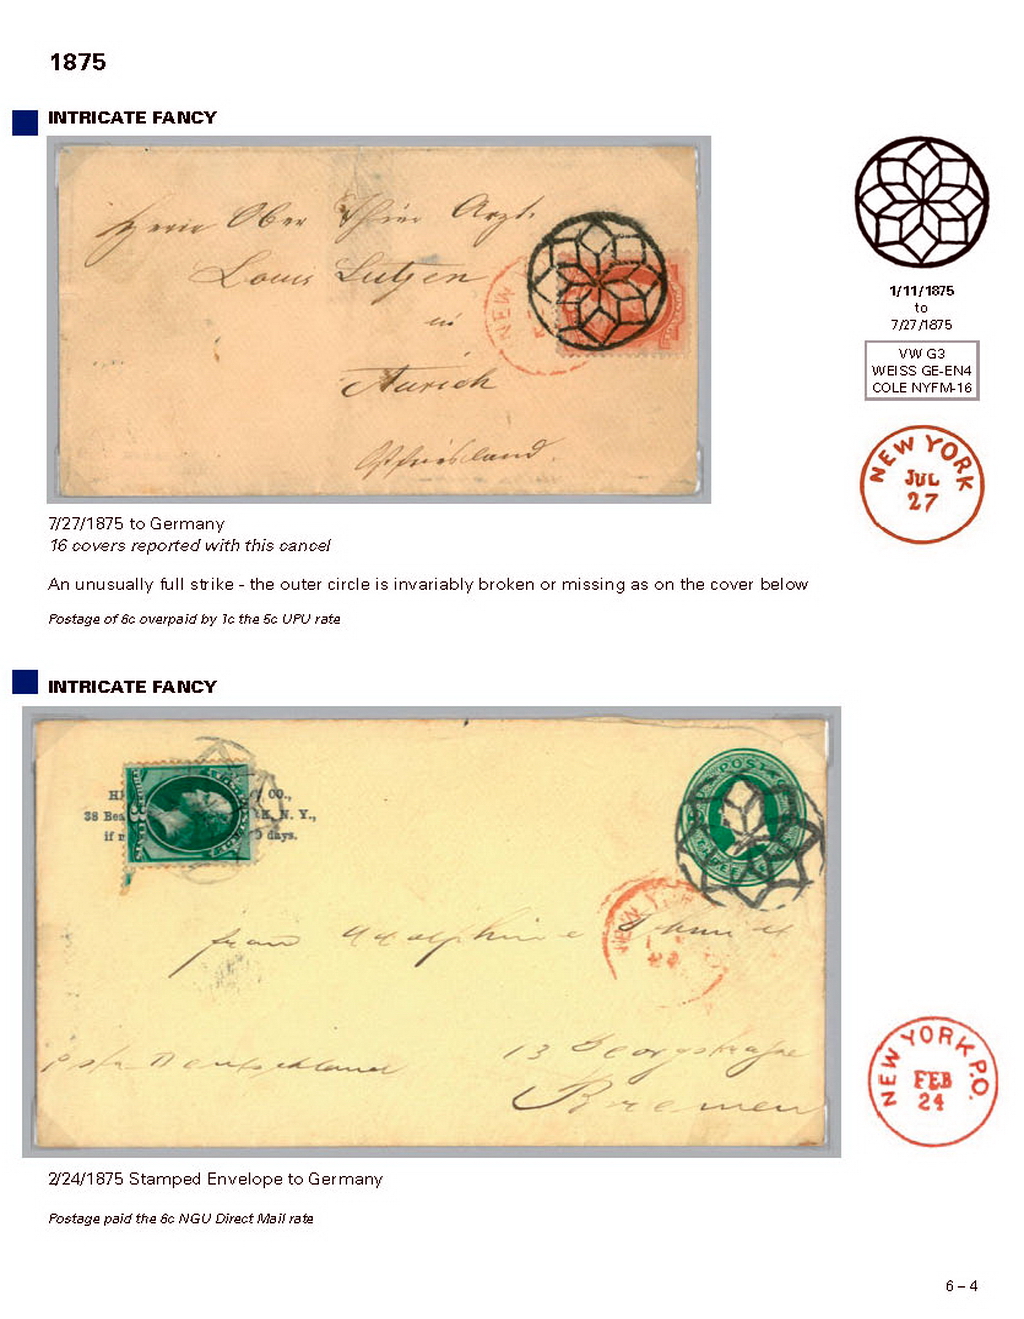 1875
INTRICATE FANCY
Herrn Ober Thier Arzt.
Louis
in
Aurich
Ostfriesland.
NEW
1/11/1875
to
7/27/1875
VW G3
WEISS GE-EN4
COLE NYFM-16
NEW YORK
JUL
27
7/27/1875 to Germany
16 covers reported with this cancel
An unusually full strike - the outer circle is invariably broken or missing as on the cover below
Postage of 6c overpaid by 1c the 5c UPU rate
INTRICATE FANCY
CO.,
38 N. Y.,
if days.
U.S. POSTAGE
THREE
NEW Y
frau Adolphine
per Deutschland
13 Georgstrasse
Bremen
NEW YORK P.O.
FEB
24
2/24/1875 Stamped Envelope to Germany
Postage paid the 6c NGU Direct Mail rate
6 – 4